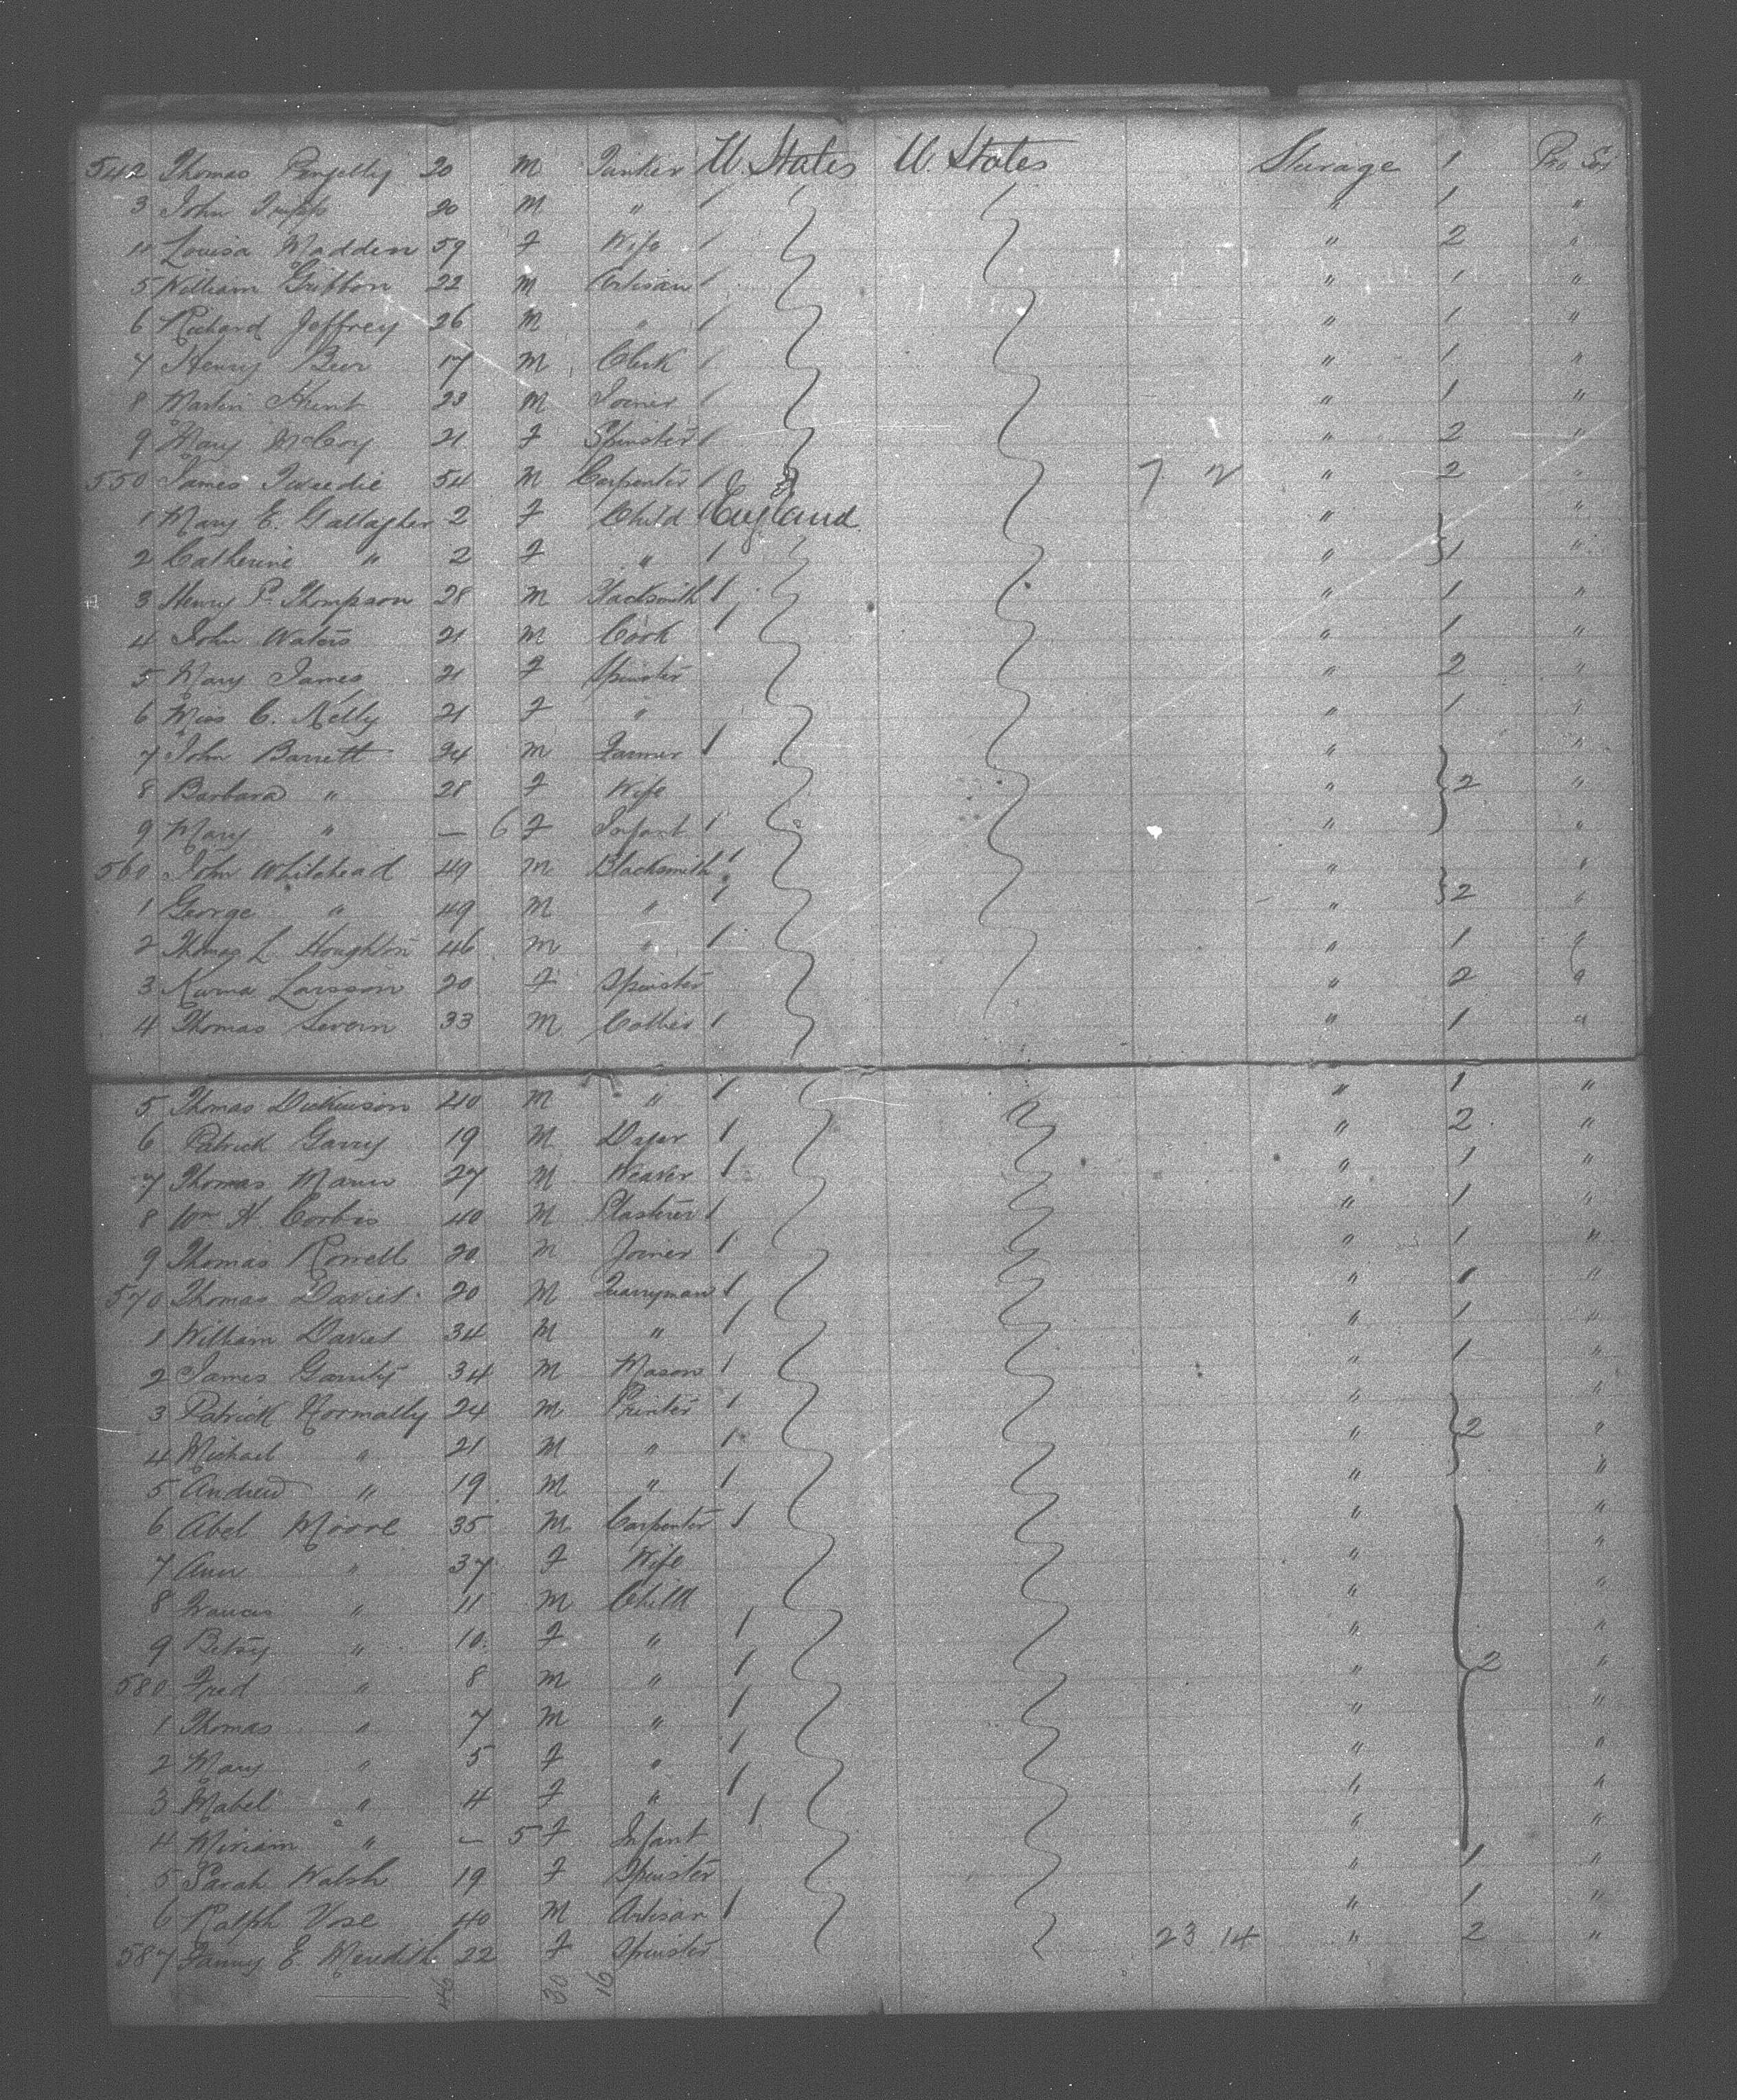 542 Thomas Pengelly 20 M Tanker U. States U. States Sturage 1 Pro Soj
3 John 20 M " 1 " 1 "
4 Louisa Madden 59 F Wife 1 " 2 "
5 William Gribbon 22 M Artisan 1 " 1 "
6 Richard Jeffrey 26 M " 1 " 1 "
7 Henry Beer 17 M Clerk 1 " 1 "
8 Martin Hunt 23 M Joiner 1 " 1 "
9 Mary McCoy 21 F Spinster 1 " 2 "
550 James Tweedie 54 M Carpenter 1 7 2 " 2 "
1 Mary E. Gallagher 2 F Child England " "
2 Catherine " 2 F " 1 " 1 "
3 Henry P. Thompson 28 M Blacksmith 1 " 1 "
4 John Waters 21 M Cook 1 " 1 "
5 Mary James 21 F Spinster " 2 "
6 Miss C. Kelly 21 F " " 1 "
7 John Barrett 34 M Farmer 1 " "
8 Barbara " 28 F Wife " 2 "
9 Mary " — 6 F Infant 1 " "
560 John Whitehead 49 M Blacksmith 1 " "
1 George " 49 M " 1 " 2 "
2 Thomas L. Houghton 46 M " 1 " 1 "
3 Karna Larsson 20 F Spinster " 2 "
4 Thomas Severn 33 M Collier 1 " 1 "
5 Thomas Dickinson 40 M " 1 " 1 "
6 Patrick Garry 19 M Dyer 1 " 2 "
7 Thomas Mann 27 M Weaver 1 " 1 "
8 Wm H. Corbis 40 M Plasterer 1 " 1 "
9 Thomas Rowell 20 M Joiner 1 " 1 "
570 Thomas Davies 20 M Quarryman 1 " 1 "
1 William Davies 34 M " 1 " 1 "
2 James Garrity 34 M Mason 1 " 1 "
3 Patrick Normally 24 M Printer 1 " "
4 Michael " 21 M " 1 " 2 "
5 Andrew " 19 M " 1 " "
6 Abel Moore 35 M Carpenter 1 " "
7 Ann " 37 F Wife " "
8 Francis " 11 M Child " "
9 Betsy " 10 F " 1 " "
580 Fred " 8 M " 1 " 2 "
1 Thomas " 7 M " 1 " "
2 Mary " 5 F " 1 " "
3 Mabel " 4 F " 1 " "
4 Miriam " — 5 F Infant 1 " "
5 Sarah Walsh 19 F Spinster " 1 "
6 Ralph Vose 40 M Artisan 1 " 1 "
587 Fanny E. Meredith 22 F Spinster 23 14 " 2 "
46 30 16